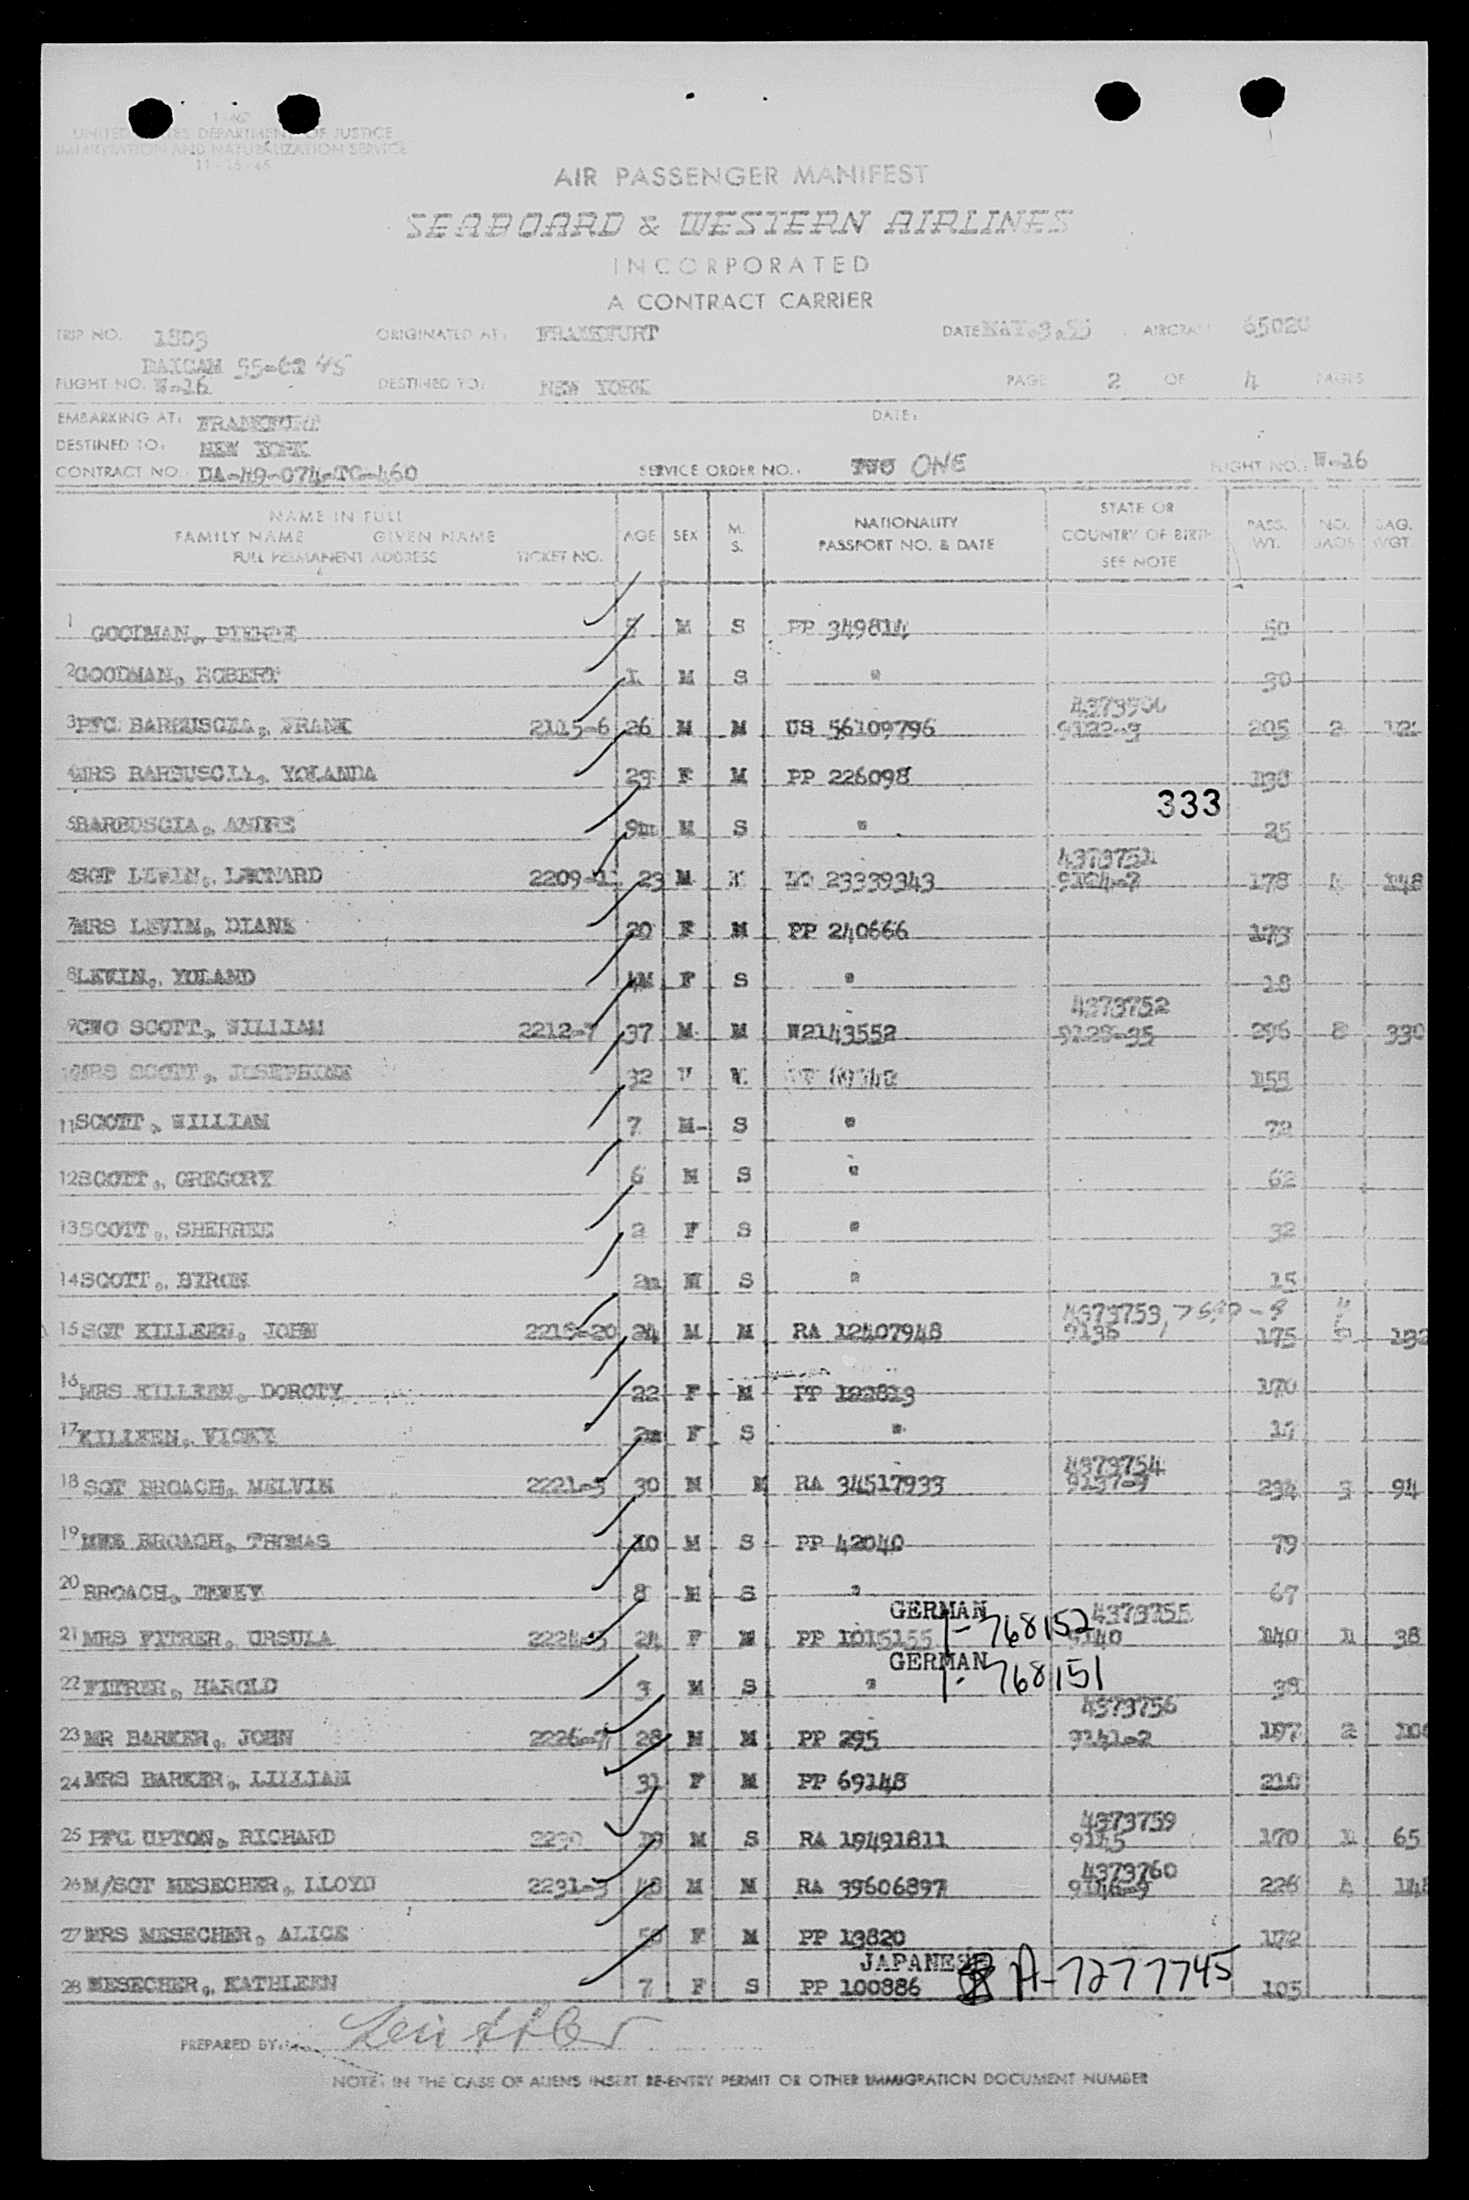 UNITED STATES DEPARTMENT OF JUSTICE
IMMIGRATION AND NATURALIZATION SERVICE
11-15-46
AIR PASSENGER MANIFEST
SEABOARD & WESTERN AIRLINES
INCORPORATED
A CONTRACT CARRIER
TRIP NO. 1803 ORIGINATED AT: FRANKFURT DATE MAY 3, 55 AIRCRAFT
55-62 45
FLIGHT NO. W-26 DESTINED TO: NEW YORK PAGE 2 OF 4 PAGES
EMBARKING AT: FRANKFURT DATE:
DESTINED TO: NEW YORK
CONTRACT NO.: DA-49-074-TC-460 SERVICE ORDER NO.: TWO ONE FLIGHT NO.: W-26
NAME IN FULL
FAMILY NAME GIVEN NAME
FULL PERMANENT ADDRESS TICKET NO. AGE SEX M. S. NATIONALITY PASSPORT NO. & DATE STATE OR COUNTRY OF BIRTH SEE NOTE PASS. WT. NO. BAGS BAG. WGT.
1 GOODMAN, PIERRE 5 M S PP 349814 50
2 GOODMAN, ROBERT 1 M S " 30
4373900
3 PFC BARBUSCIA, FRANK 2115-6 26 M M US 56109796 9122-3 205 2 121
4 MRS BARBUSCIA, YOLANDA 23 F M PP 226098 138
333
5 BARBUSCIA, ANDRE 9m M S " 25
4373751
6 SGT LEVIN, LEONARD 2209-11 23 M 23339343 9124-7 178 4 148
7 MRS LEVIN, DIANE 20 F M PP 240666 173
8 LEVIN, YOLAND 4M F S " 18
4373752
9 CWO SCOTT, WILLIAM 2212-7 37 M M W2143552 9128-35 296 8 330
10 MRS SCOTT, JOSEPHINE 32 155
11 SCOTT, WILLIAM 7 M S " 72
12 SCOTT, GREGORY 6 M S " 62
13 SCOTT, SHERREE 2 F S " 32
14 SCOTT, BYRON 2m M S " 15
4373753, 75
15 SGT KILLEEN, JOHN 2218-20 24 M M RA 12407948 9136 175 192
16 MRS KILLEEN, DOROTY 22 F M PP 122813 170
17 KILLEEN, VICKY 2m F S " 17
4373754
18 SGT BROACH, MELVIN 2221-3 30 M M RA 34517933 9137-9 234 3 94
19 BROACH, THOMAS 10 M S PP 42040 79
20 BROACH, DEWEY 8 M S " 67
GERMAN 4373755
21 MRS FITRER, URSULA 2224-5 24 F M PP 1015155 1-768152 9140 140 1 38
GERMAN
22 FITRER, HAROLD 3 M S " 1-768151 38
4373756
23 MR BARKER, JOHN 2226-7 28 M M PP 295 9141-2 197 2 106
24 MRS BARKER, LILLIAM 31 F M PP 69148 210
4373759
25 PFC UPTON, RICHARD 2230 19 M S RA 19491811 9145 170 1 65
4373760
26 M/SGT MESECHER, LLOYD 2231-3 48 M M RA 39606897 9146-9 226 4 148
27 MRS MESECHER, ALICE 50 F M PP 13820 172
JAPANESE
28 MESECHER, KATHLEEN 7 F S PP 100886 A-7277745 105
PREPARED BY:
NOTE: IN THE CASE OF ALIENS INSERT RE-ENTRY PERMIT OR OTHER IMMIGRATION DOCUMENT NUMBER